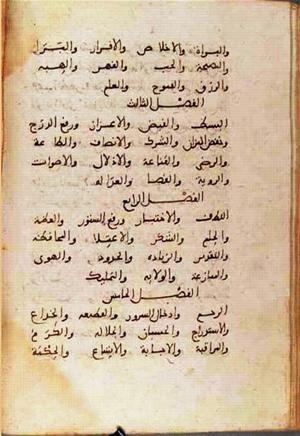 والبراة والاخلاص والاقرار والتنزل
والصحة والحب والقهر والهيبه
والرزق والفتوح والعلم
الفصل الثالث
البسط والقبض والاعزاز ورفع الدرج
وخفض الميزان والشرك والانصاف والطاعة
والرضى والقناعة والاذلال والاصوات
والروية والقضا والعدالة
الفصل الرابع
اللطف والاختبار ورفع الستور والعظمة
والحلم والشكر والاعتلا والمحافظة
والتقدس والزياده والحدود والهوى
والمنازعة والولايه والتمليك
الفصل الخامس
الرجع وادخال السرور والقطيعه والخداع
والاستدراج والحسبان والجلالة والكرم
والمراقبة والاجابة والاتساع والحكمة